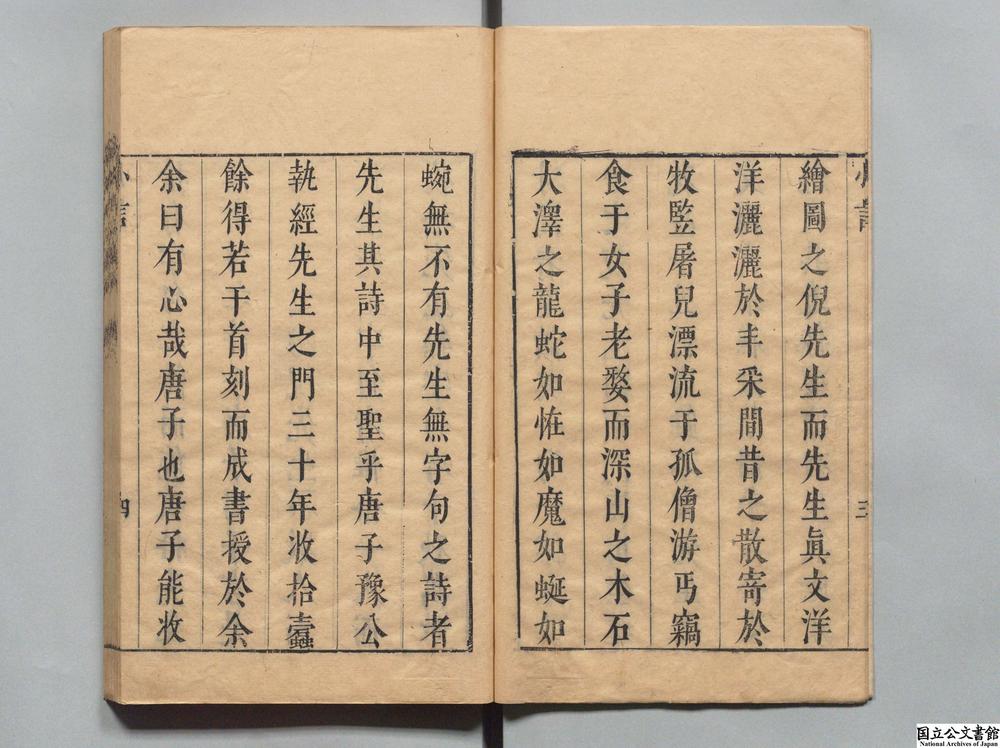 繪圖之倪先生而先生眞文洋
洋灑灑於丰采間昔之散寄於
牧監屠兒漂流于孤僧游丐竊
食于女子老婺而深山之木石
大澤之龍蛇如恠如魔如蜒如
蜿無不有先生無字句之詩者
先生其詩中至聖乎唐子豫公
執經先生之門三十年收拾蠹
餘得若干首刻而成書授於余
余曰有心哉唐子也唐子能收
四
国立公文書館
National Archives of Japan